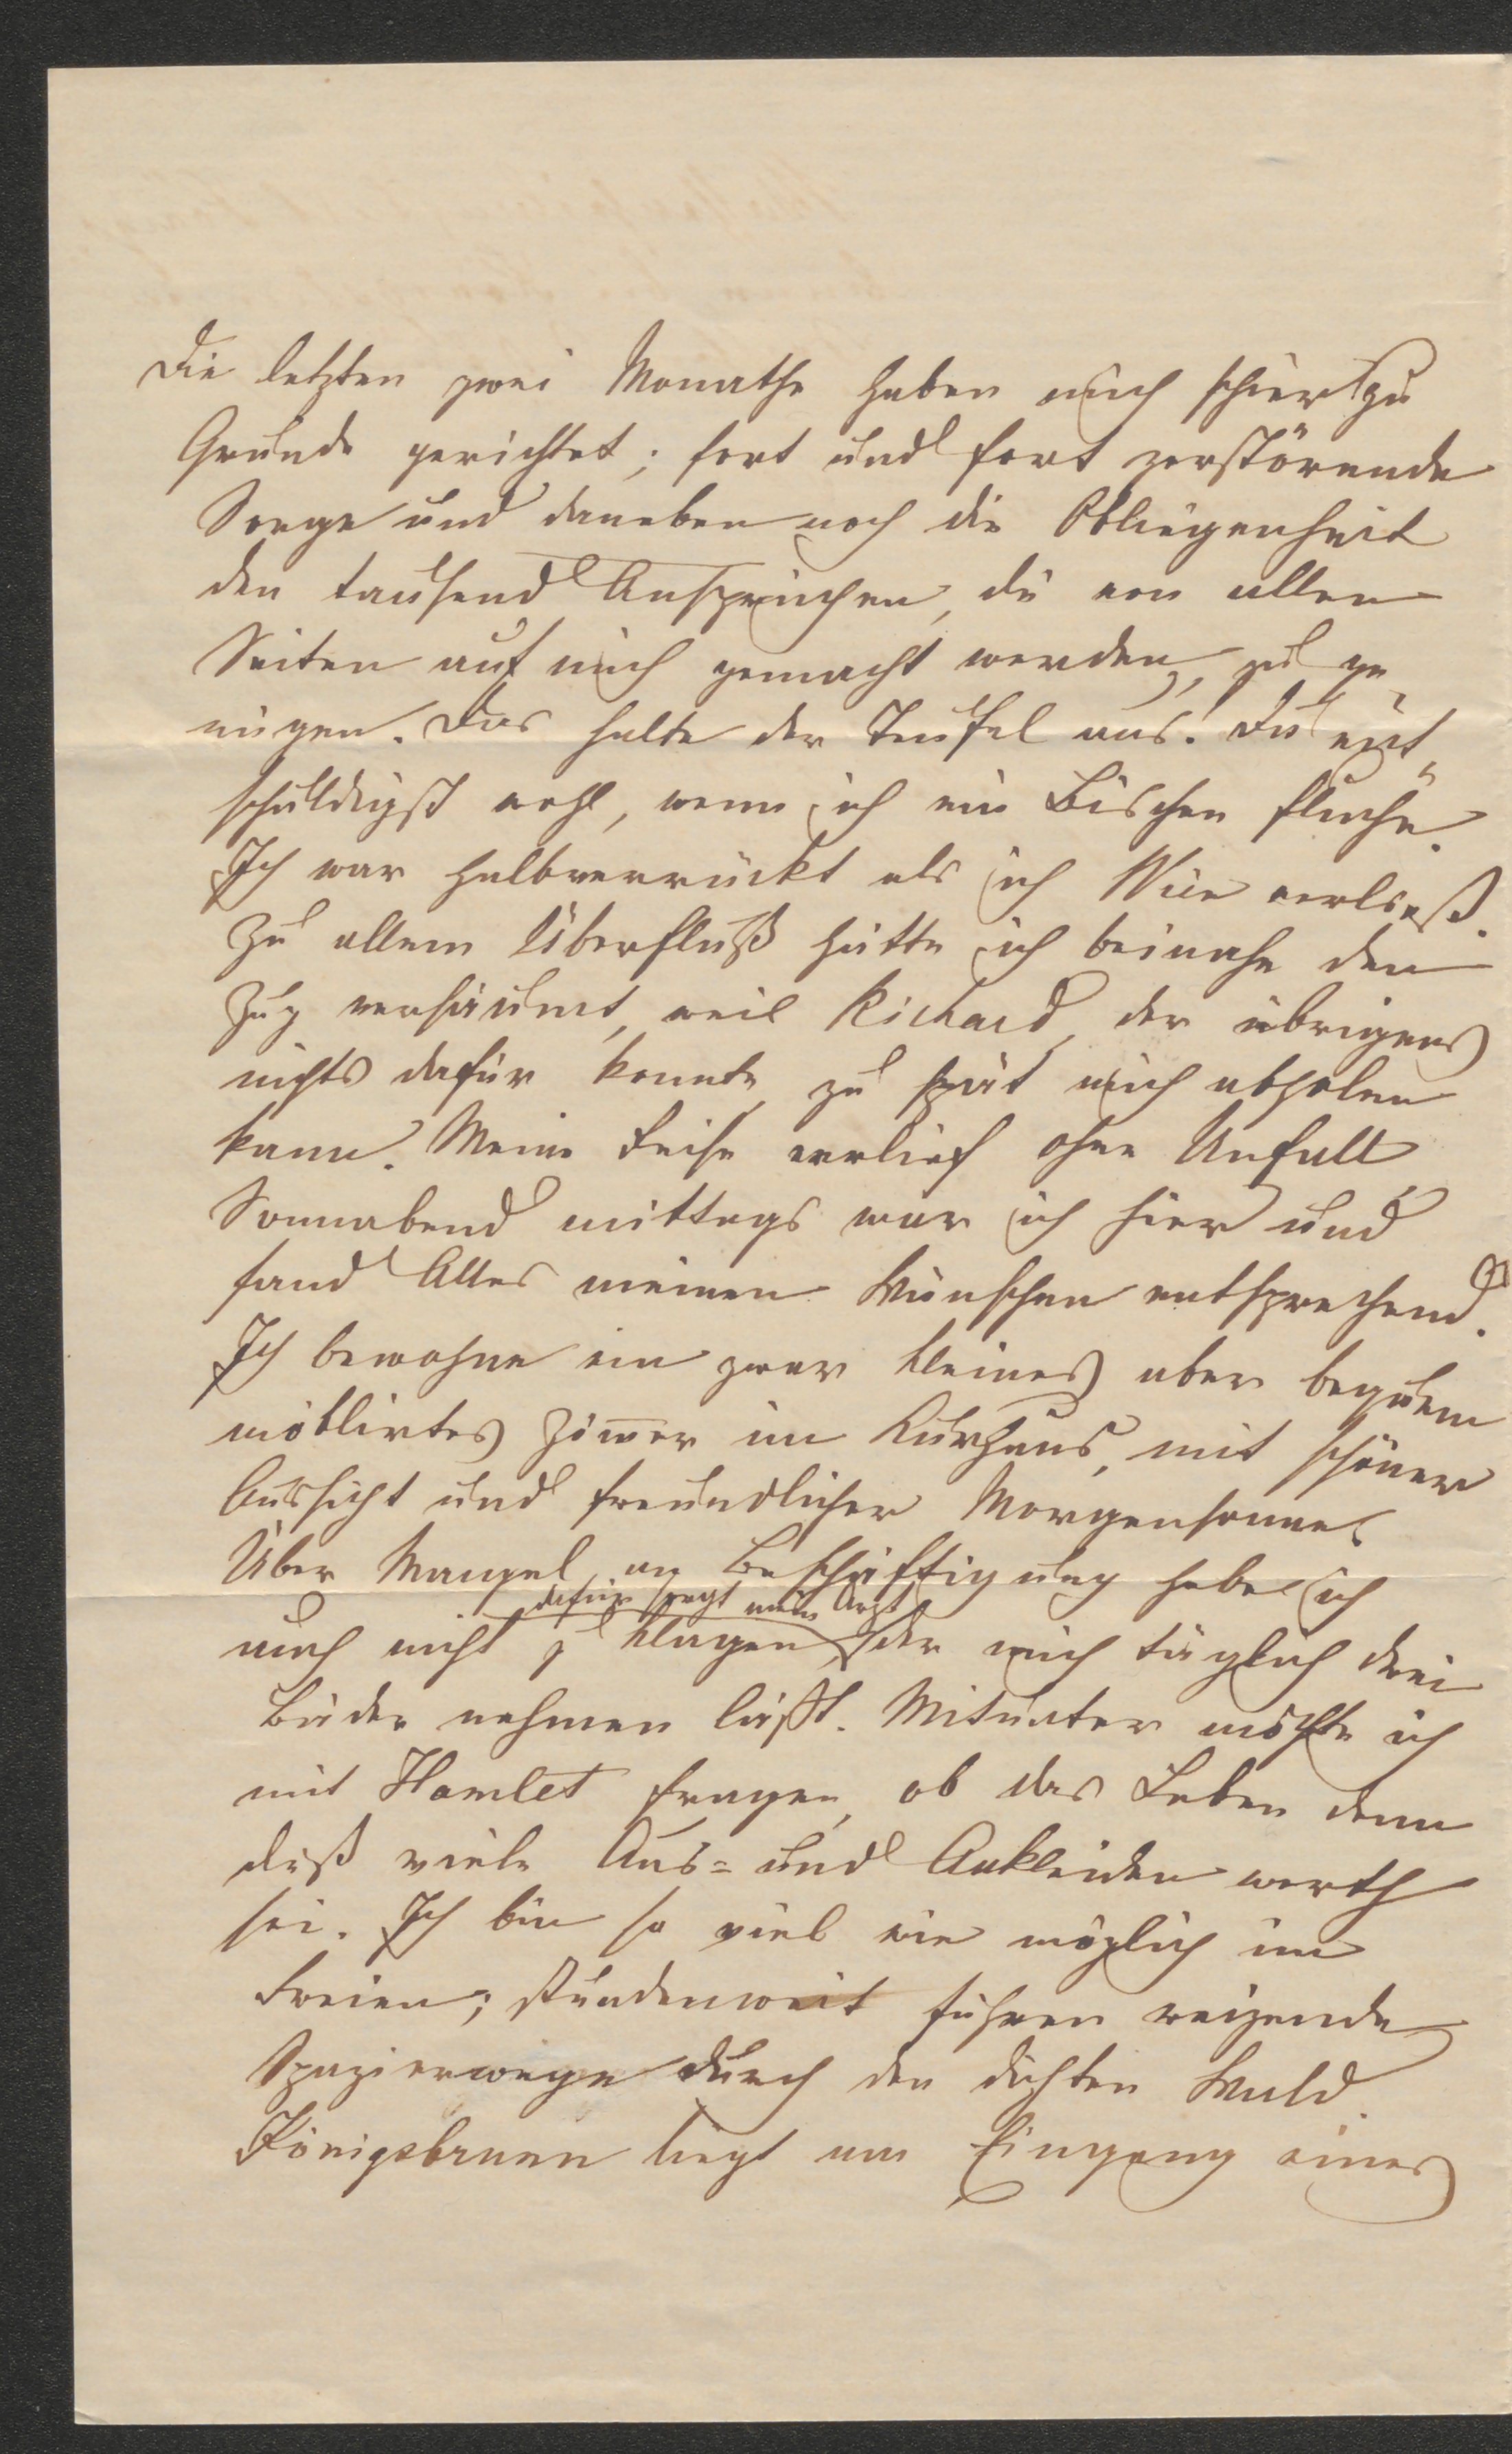 Die letzten zwei Monathe haben mich schier zu
Grunde gerichtet; fort und fort zerstörende
Sorge und daneben noch die Obliegenheit
den tausend Ansprüchen, die von allen
Seiten auf mich gemacht werden, zu ge-
nügen. Das halte der Teufel aus! Du ent-
schuldigst wohl, wenn ich ein Bischen fluche.
Ich war halbverrückt als ich Wien verließ.
Zu allem Überfluß hätte ich beinahe den
Zug versäumt, weil Richard, der übrigens
nichts dafür konnte, zu spät mich abholen
kam. Meine Reise verlief ohne Unfall
Sonnabend mittags war ich hier und
fand Alles meinen Wünschen entsprechend.
Ich bewohne ein zwar kleines aber bequem
möblirtes Zimmer im Kurhaus, mit schöner
Aussicht und freundlicher Morgensonne.
Über Mangel an Beschäftigung habe ich
dafür sorgt mein Arzt,
auch nicht z klagen, der mich täglich drei
Bäder nehmen läßt. Mitunter möchte ich
mit Hamlet fragen, ob das Leben denn
dieß viele Aus= und Ankleiden werth
sei. Ich bin so viel wie möglich im
Freien; stundenweit führen reizende
Spazierwege durch den dichten Wald.
Königsbrunn liegt am Eingang eines